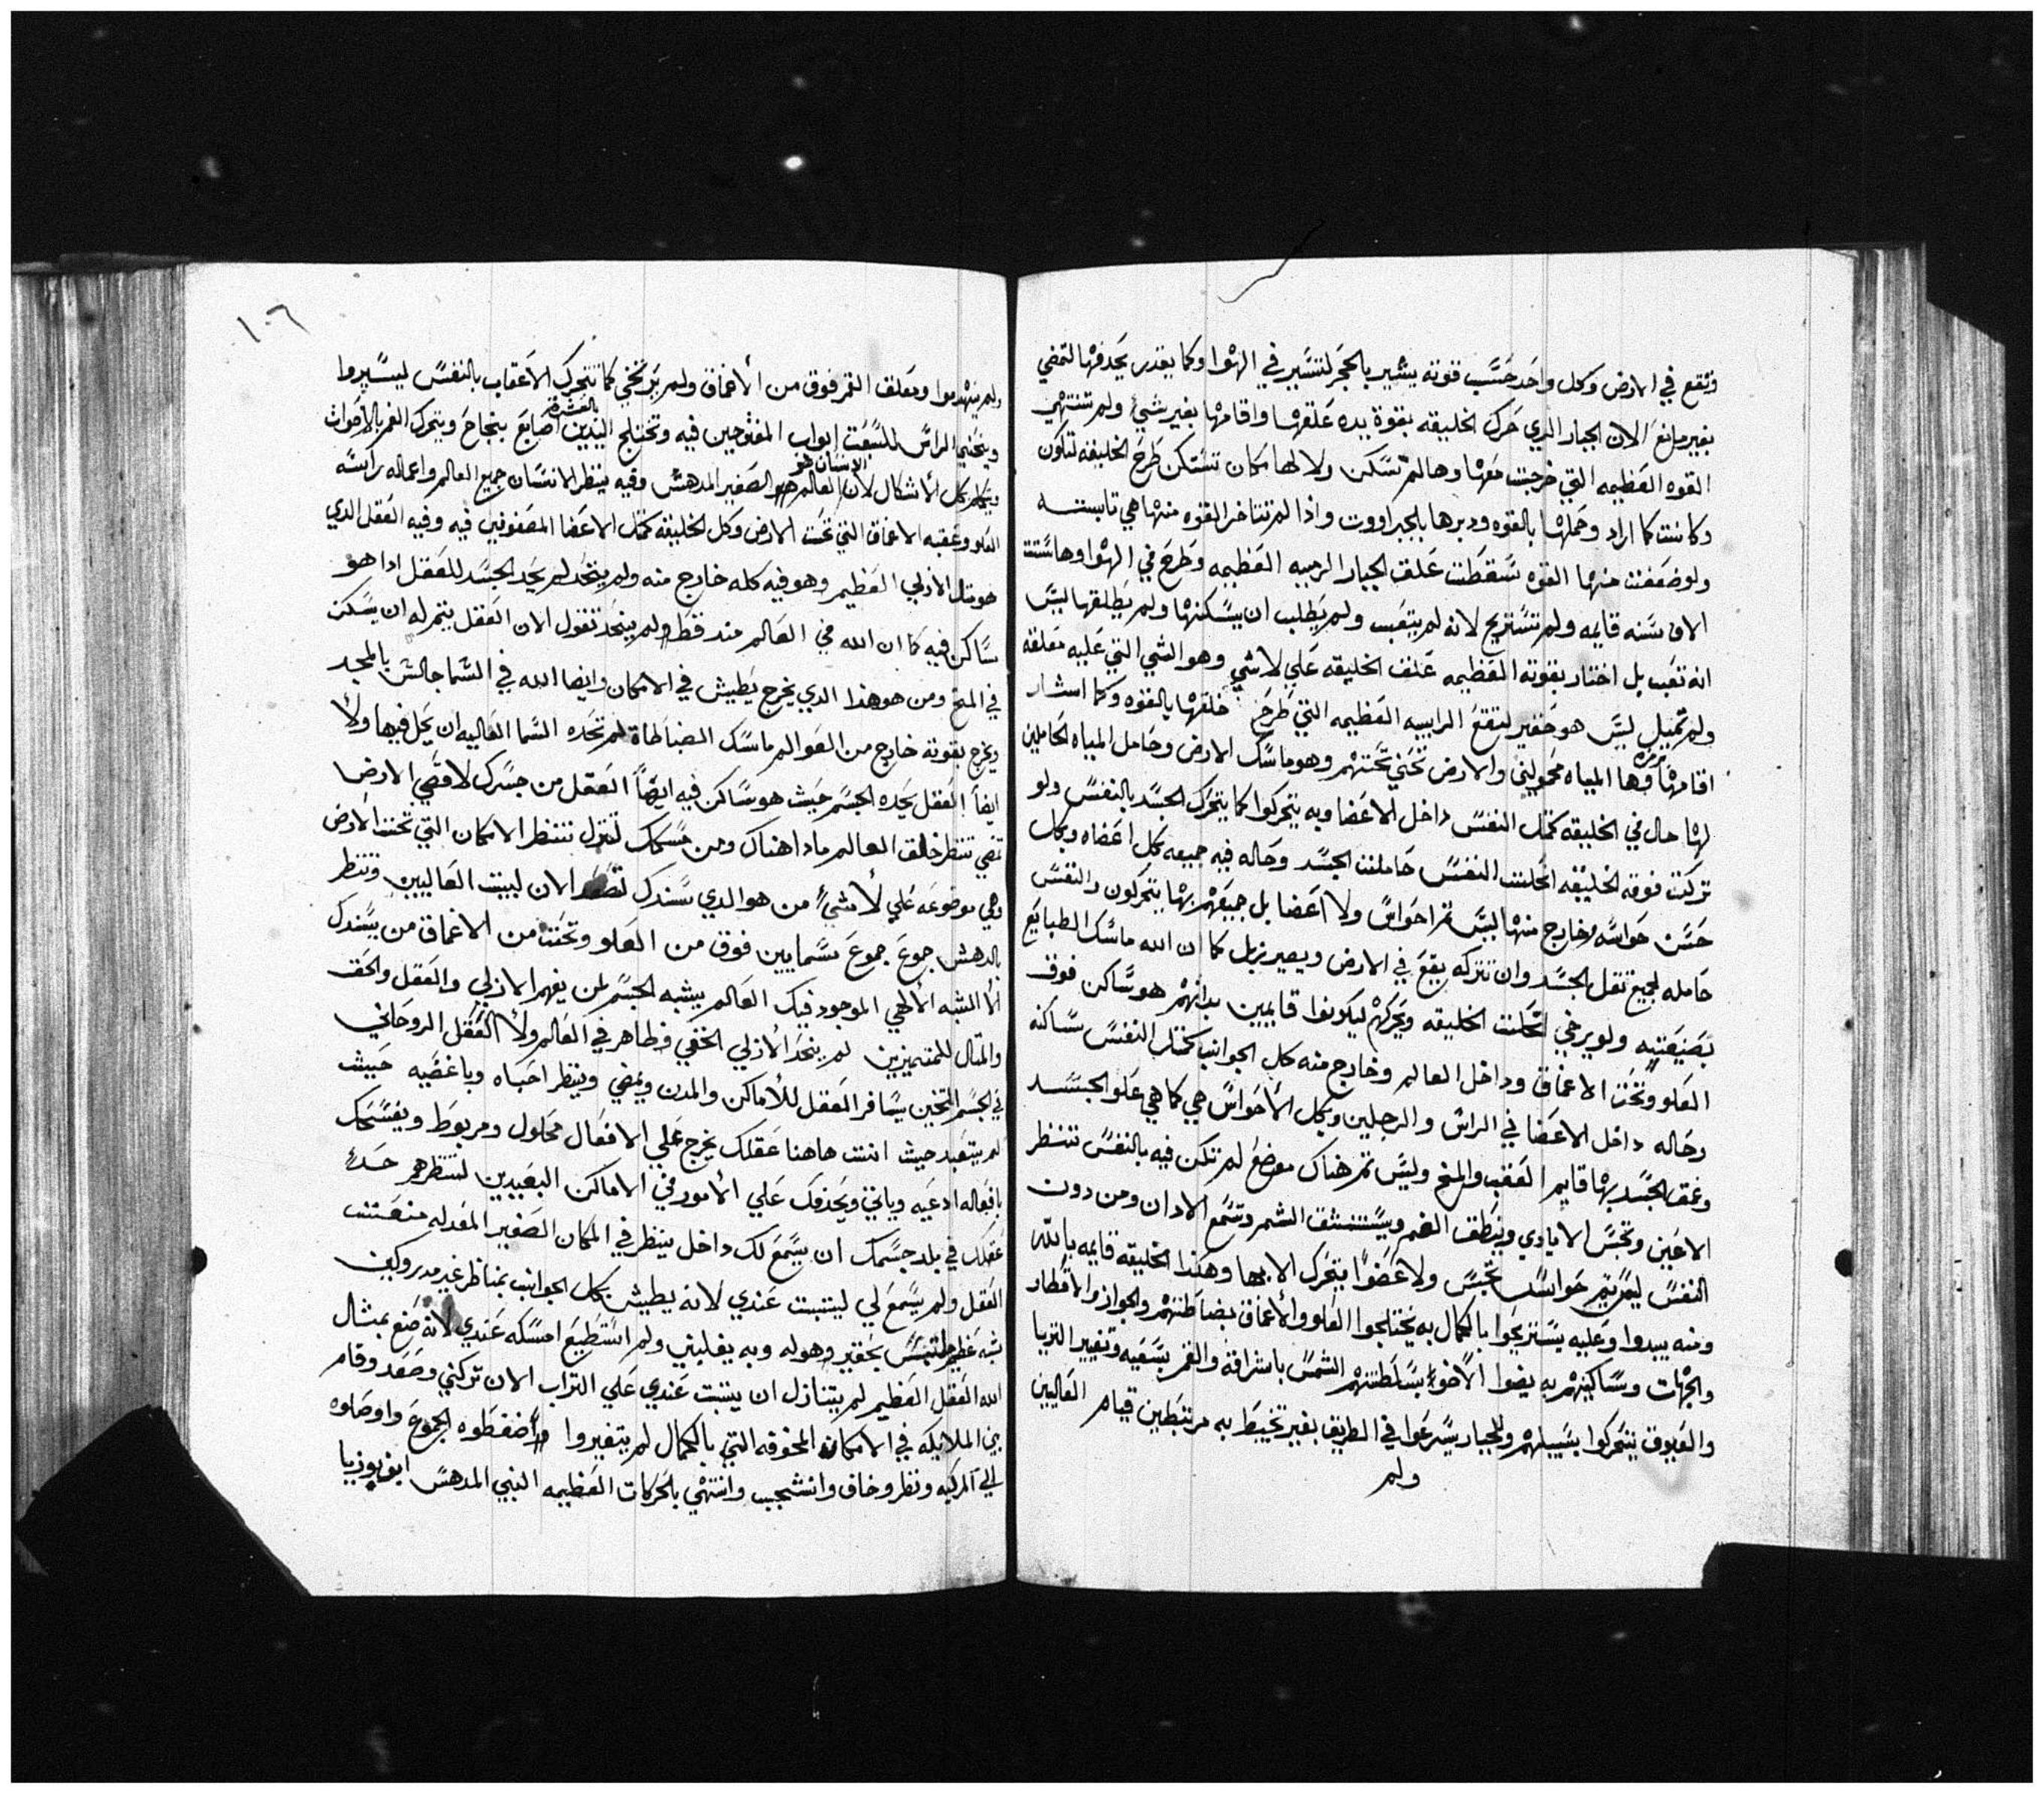 وتقع في الارض وكل واحد حسب قوته يشير بالحجر لتسير في الهوا وكما يقدر يحدفها لتمضي
بغير مانع الان الجبار الدي حرك الخليقه بقوة يده علقها واقامها بغير شي ولم تنتهي
القوه العظيمه التي خرجت معها وها لم تسكن ولا لها مكان تسكن طرح الخليقه لتكون
وكانت كما اراد وحملها بالقوه ودبرها بالجبراووت واذا لم تتاخر القوه منها هي تابسته
ولو ضعفت منها القوه سقطت علق الجبار الربيه العظيمه وطرح في الهوا وها ستت
الاف سنه قايمه ولم تستريح لانه لم يتعب ولم يطلب ان يسكنها ولم يطلقها ليس
انه تعب بل اختار بقوته العظيمه علق الخليقه علي لا شي وهو الشي التي عليه معلقه
ولم تميل ليس هو حقير لتقع الرابيه العظيمه التي طرح خلقها بالقوه وكما اشار
اقامها وها المياه محمولين والارض تحني تحتهم وهو ماسك الارض وحامل المياه الحاملين
لها حال في الخليقه كمثل النفس داخل الاعضا وبه يتحركوا كما يتحرك الجسد بالنفس ولو
تركت قوته الخليقه انحلت النفس حاملت الجسد وحاله فيه جميعه بكل اعضاه وبكل
حسن حواسه وخارج منها ليس تم احواس ولا اعضا بل جميعهم بها يتحركون والنفس
حامله لجميع تقل الجسد وان تتركه يقع في الارض ويصير زبل كما ان الله ماسك الطبايع
بصنيعتيه ولو يرخي انحلت الخليقه ويحركهم ليكونوا قايمين بداتهم هو ساكن فوق
العلو وتحت الاعماق وداخل العالم وخارج منه كل الجوانب كمثل النفس ساكنه
وحاله داخل الاعضا في الراس والرجلين وبكل الاحواس هي كما هي علو الجسد
وعمق الجسد بها قايم العقب والمخ وليس تم هناك موضع لم تكن فيه بالنفس تنظر
الاعين وتجس الايادي وينطق الفم ويستنشق الشم وتسمع الادان ومن دون
النفس ليس تم حواس تحس ولا عضوا يتحرك الا بها وهكذا الخليقه قايمه بالله
ومنه يبدوا وعليه يستريحوا بالكمال به يختلجوا العلو والاعماق بضباطتهم والجواز والاقطار
والجهات وساكنيهم به يضوا الاضوا بسلطتهم الشمس باشراقه والقمر بسعيه وتغيير التريا
والعيوق يتحركوا بسبيلهم وللجبار يسرعوا في الطريق بغير تخبيط به مرتبطين قيام العاليين
ولم
١٠٦
ولم ينهدموا ومعلق القمر فوق من الأعماق ولم يرتخي كما تتحرك الاعقاب بالنفس ليسيروا
وينحني الراس للسبعت ابواب المفتوحين فيه وتختلج اليدين بالعشرة اصابع بنجاح ويتحرك الفم بالاصوات
ويكمل بكل الأشكال لان الانسان هو العالم الصغير المدهش وفيه ينظر الانسان جميع العالم واعماله راسه
العلو وعقبه الاعماق التي تحت الارض وكل الخليقه كمثل الاعضا المصفوفين فيه وفيه العقل الدي
هو مثل الازلي العظيم وهو فيه كله خارج منه ولم ينحد لم يحد الجسد للعقل اذا هو
ساكن فيه كما ان الله في العالم مند قط ولم ينحد تقول الان العقل يتم له ان يسكن
في المخ ومن هو هذا الدي يخرج يطيش في الامكان وايضا الله في السما جالس بالمجد
ويخرج بقوته خارج من العوالم ماسك الضباطاة لم تحده السما العاليه ان يحل فيها ولا
ايضا العقل يحده الجسم حيث هو ساكن فيه ايضا العقل من جسدك لاقصي الارض
تمضي تنظر خالق العالم مادا هناك ومن جسمك تنزل تنظر الامكان التي تحت الأرض
وهي موضوعه علي لا شي من هو الدي يسندك تصعد الان لبيت العاليين وتنظر
بالدهش جموع جموع سمايين فوق من العلو وتحت من الاعماق من يسندك
الا الشبه الالهي الموجود فيك العالم يشبه الجسم لمن يفهم الازلي والعقل والحق
والمثال للمتميزين لم ينحد الازلي الخفي وظاهر في العالم ولا العقل الروحاني
في الجسم التخين يسافر العقل للاماكن والمدن ويمضي وينظر احباه وباغضيه حيث
لم يتبعد حيث انت هاهنا عقلك يخرج علي الافعال محلول ومربوط ويفسحك
بافعاله ادعيه وياتي ويحدفك علي الامور في الاماكن البعيدين لتنظرهم
عقلك في بلد جسمك ان يسمع لك داخل ينظر في المكان الصغير المعد له
العقل ولم يسمع لي ليتبت عندي لانه يطيش بكل الجوانب بمناظر غير مدروكين
شبه عظيم التمس بحقير وهوله وبه يغلبني ولم استطيع امسكه عندي لانه صنع بمثال
الله العقل العظيم لم يتنازل ان يتبت عندي علي التراب الان تركني وصعد وقام
بين الملايكه في الامكان المخوفه التي بالكمال لم يتغيروا واضغطوه الجموع واوصلوه
الي المركبه ونظر وخاف وانشجب وانتهي بالحركات العظيمه النبي المدهش